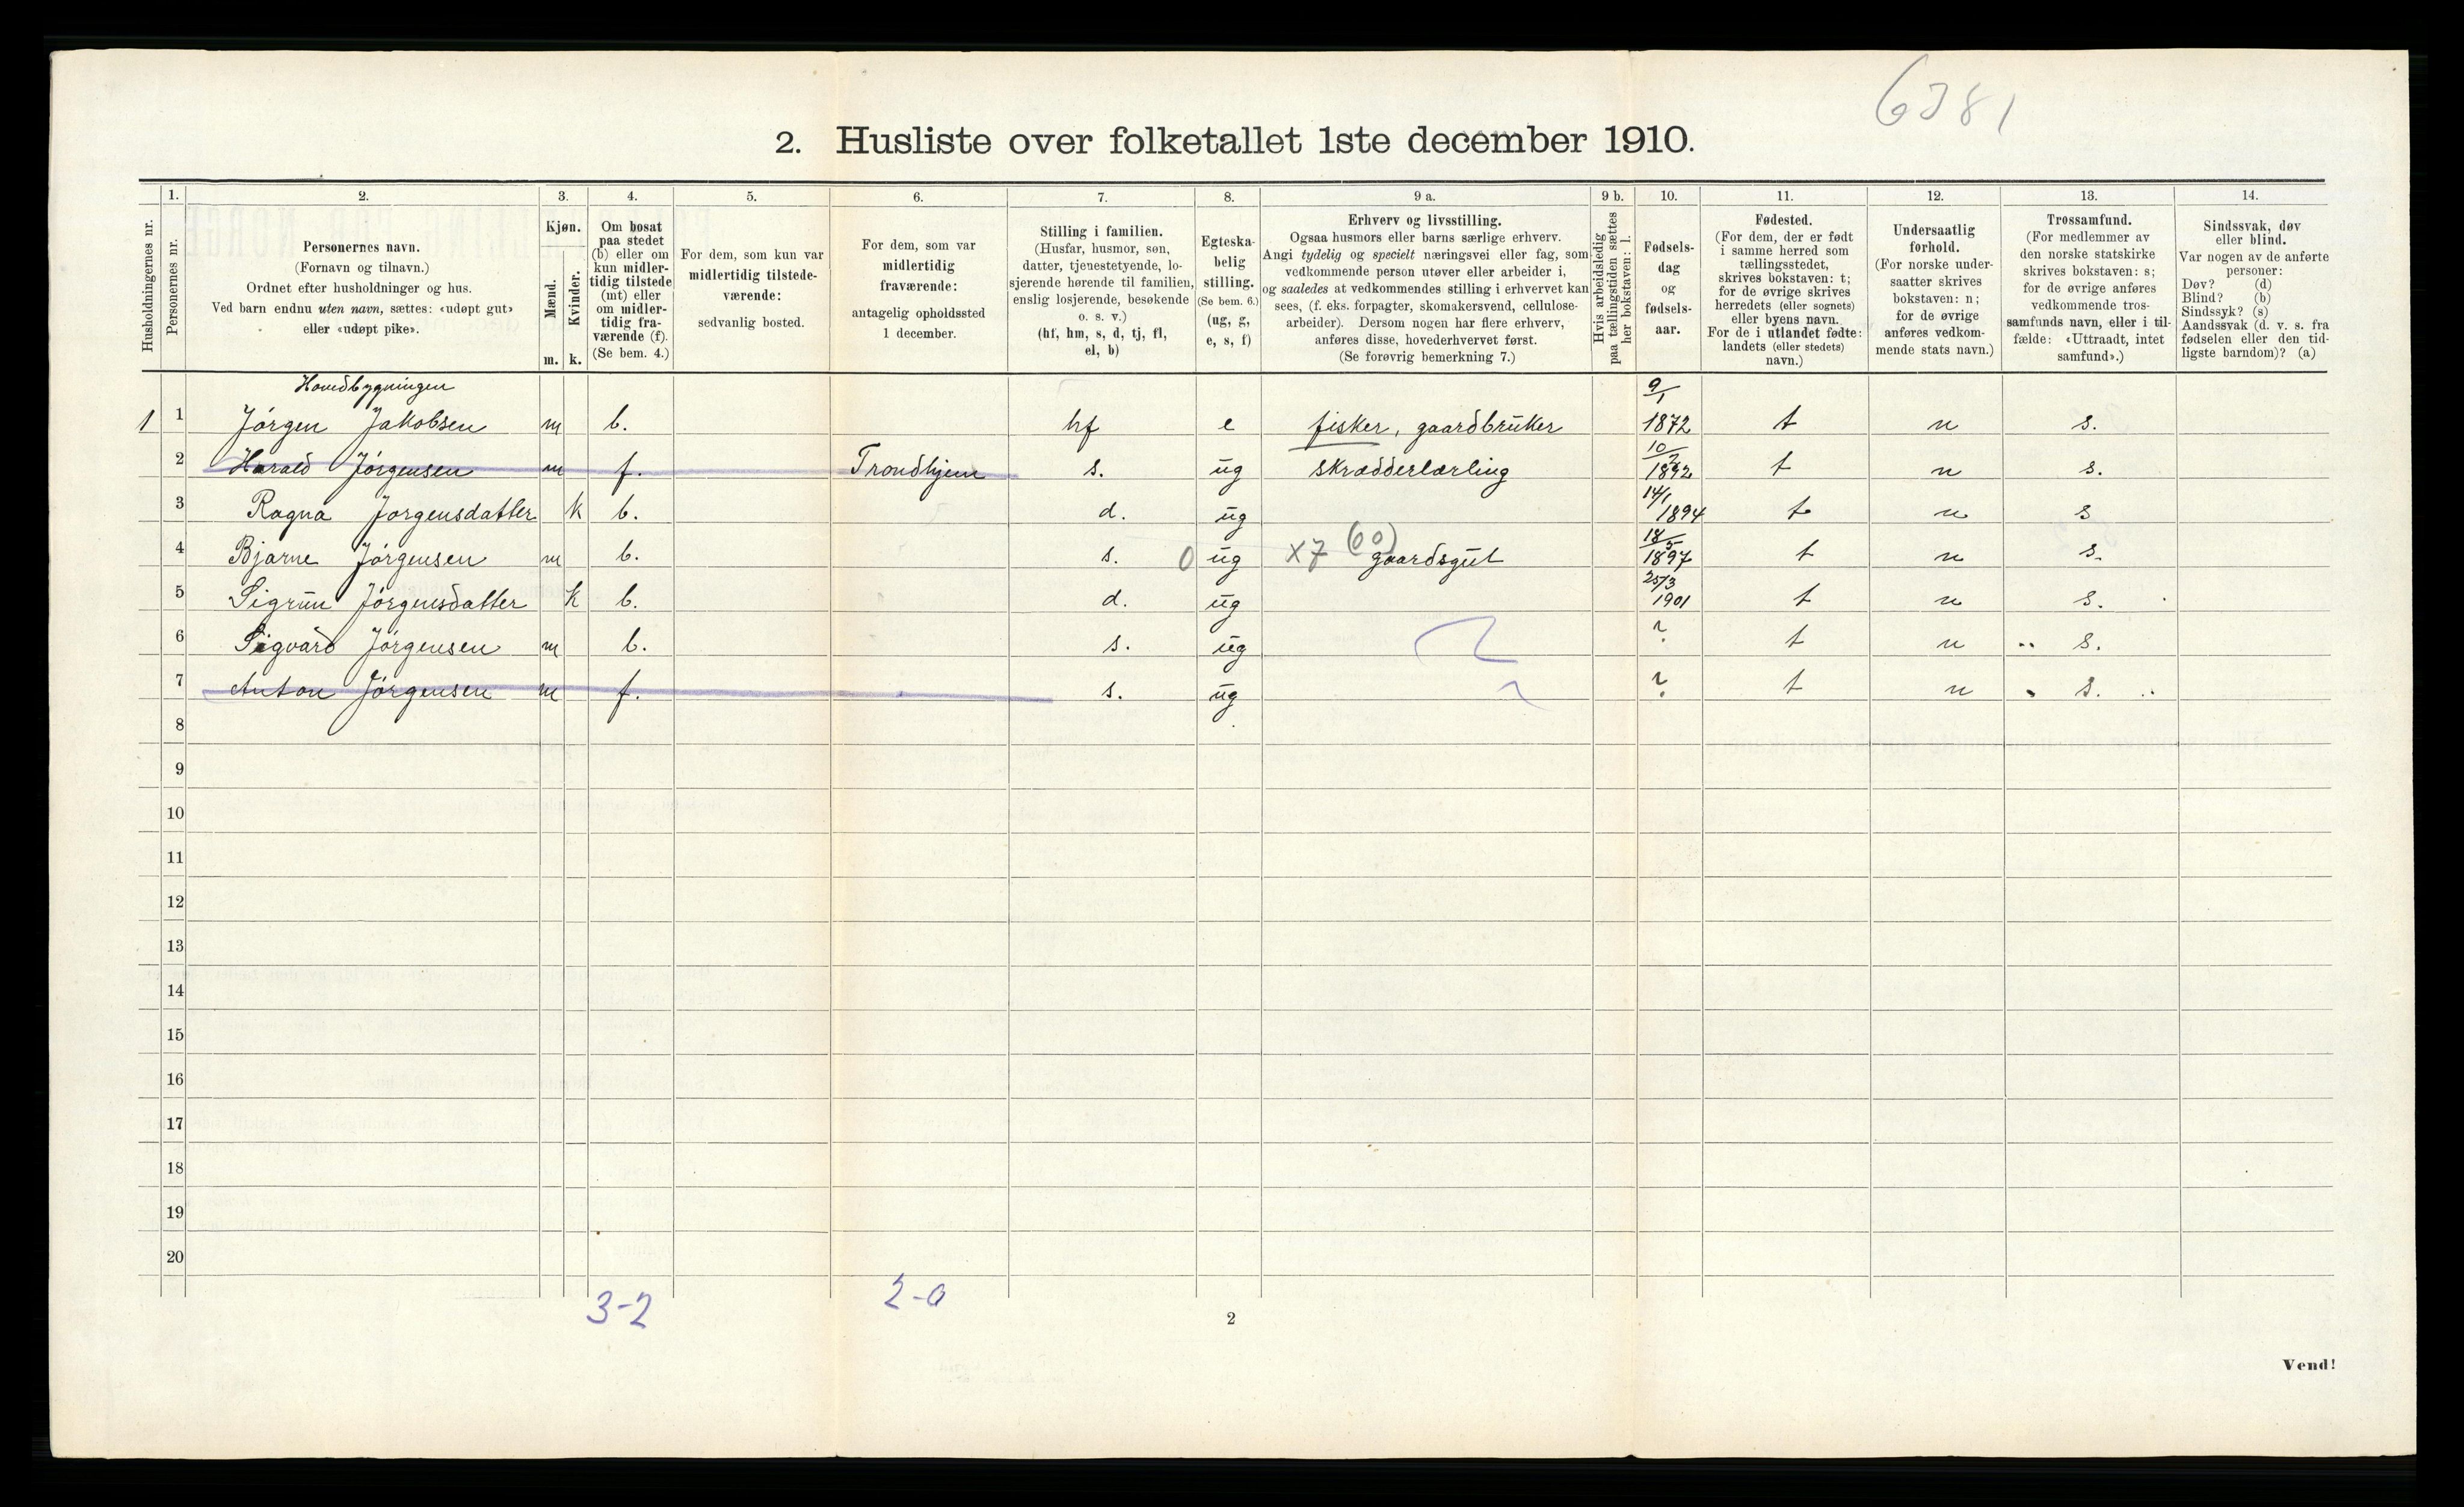 6381
2. Husliste over folketallet 1ste december 1910.
Husholdningernes nr.
1.
Personernes nr.
2.
Personernes navn.
(Fornavn og tilnavn.)
Ordnet efter husholdninger og hus.
Ved barn endnu uten navn, sættes: «udøpt gut»
eller «udøpt pike».
3.
Kjøn.
Mænd.
Kvinder.
m. k.
4.
Om bosat
paa stedet
(b) eller om
kun midler-
tidig tilstede
(mt) eller
om midler-
tidig fra-
værende (f).
(Se bem. 4.)
5.
For dem, som kun var
midlertidig tilstede-
værende:
sedvanlig bosted.
6.
For dem, som var
midlertidig
fraværende:
antagelig opholdssted
1 december.
7.
Stilling i familien.
(Husfar, husmor, søn,
datter, tjenestetyende, lo-
sjerende hørende til familien,
enslig losjerende, besøkende
o. s. v.)
(hf, hm, s, d, tj, fl,
el, b)
8.
Egteska-
belig
stilling.
(Se bem. 6.)
(ug, g,
e, s, f)
9 a.
Erhverv og livsstilling.
Ogsaa husmors eller barns særlige erhverv.
Angi tydelig og specielt næringsvei eller fag, som
vedkommende person utøver eller arbeider i,
og saaledes at vedkommendes stilling i erhvervet kan
sees, (f. eks. forpagter, skomakersvend, cellulose-
arbeider). Dersom nogen har flere erhverv,
anføres disse, hovederhvervet først.
(Se forøvrig bemerkning 7.)
9 b.
Hvis arbeidsledig
paa tællingstiden sættes
her bokstaven: l.
10.
Fødsels-
dag
og
fødsels-
aar.
11.
Fødested.
(For dem, der er født
i samme herred som
tællingsstedet,
skrives bokstaven: t;
for de øvrige skrives
herredets (eller sognets)
eller byens navn.
For de i utlandet fødte:
landets (eller stedets)
navn.)
12.
Undersaatlig
forhold.
(For norske under-
saatter skrives
bokstaven: n;
for de øvrige
anføres vedkom-
mende stats navn.)
13.
Trossamfund.
(For medlemmer av
den norske statskirke
skrives bokstaven: s;
for de øvrige anføres
vedkommende tros-
samfunds navn, eller i til-
fælde: «Uttraadt, intet
samfund».)
14.
Sindssvak, døv
eller blind.
Var nogen av de anførte
personer:
Døv? (d)
Blind? (b)
Sindssyk? (s)
Aandssvak (d. v. s. fra
fødselen eller den tid-
ligste barndom)? (a)
Hovedbygningen
1 1 Jørgen Jakobsen m b. hf e fisker, gaardbruker 9/1 1872 t n s.
2 Harald Jørgensen m f. Trondhjem s. ug skrædderlærling 10/2 1892 t n s.
3 Ragna Jørgensdatter k b. d. ug 14/1 1894 t n s
4 Bjarne Jørgensen m b. s. 0 ug x7 (00) gaardsgut 18/5 1897 t n s.
5 Sigrun Jørgensdatter k b. d. ug 25/3 1901 t n s.
6 Sigvard Jørgensen m b. s. ug ? t n s.
7 Anton Jørgensen m f. s. ug ? t n s.
8
9
10
11
12
13
14
15
16
17
18
19
20
3-2 2-0
2
Vend!